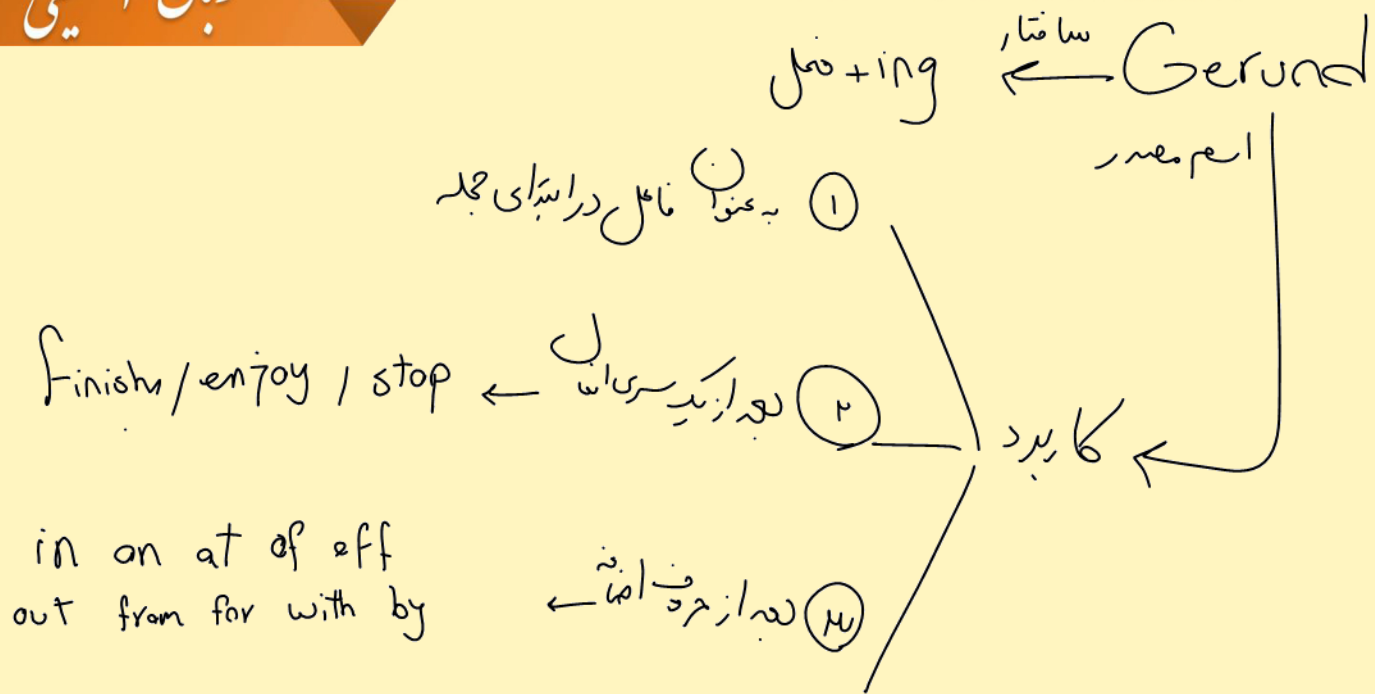 Gerund ← ساختار ← فعل + ing
اسم مصدر
کاربرد
① به عنوان فاعل در ابتدای جمله
② بعد از یک سری افعال ← finish / enjoy / stop
③ بعد از حروف اضافه ←
in on at of off
out from for with by